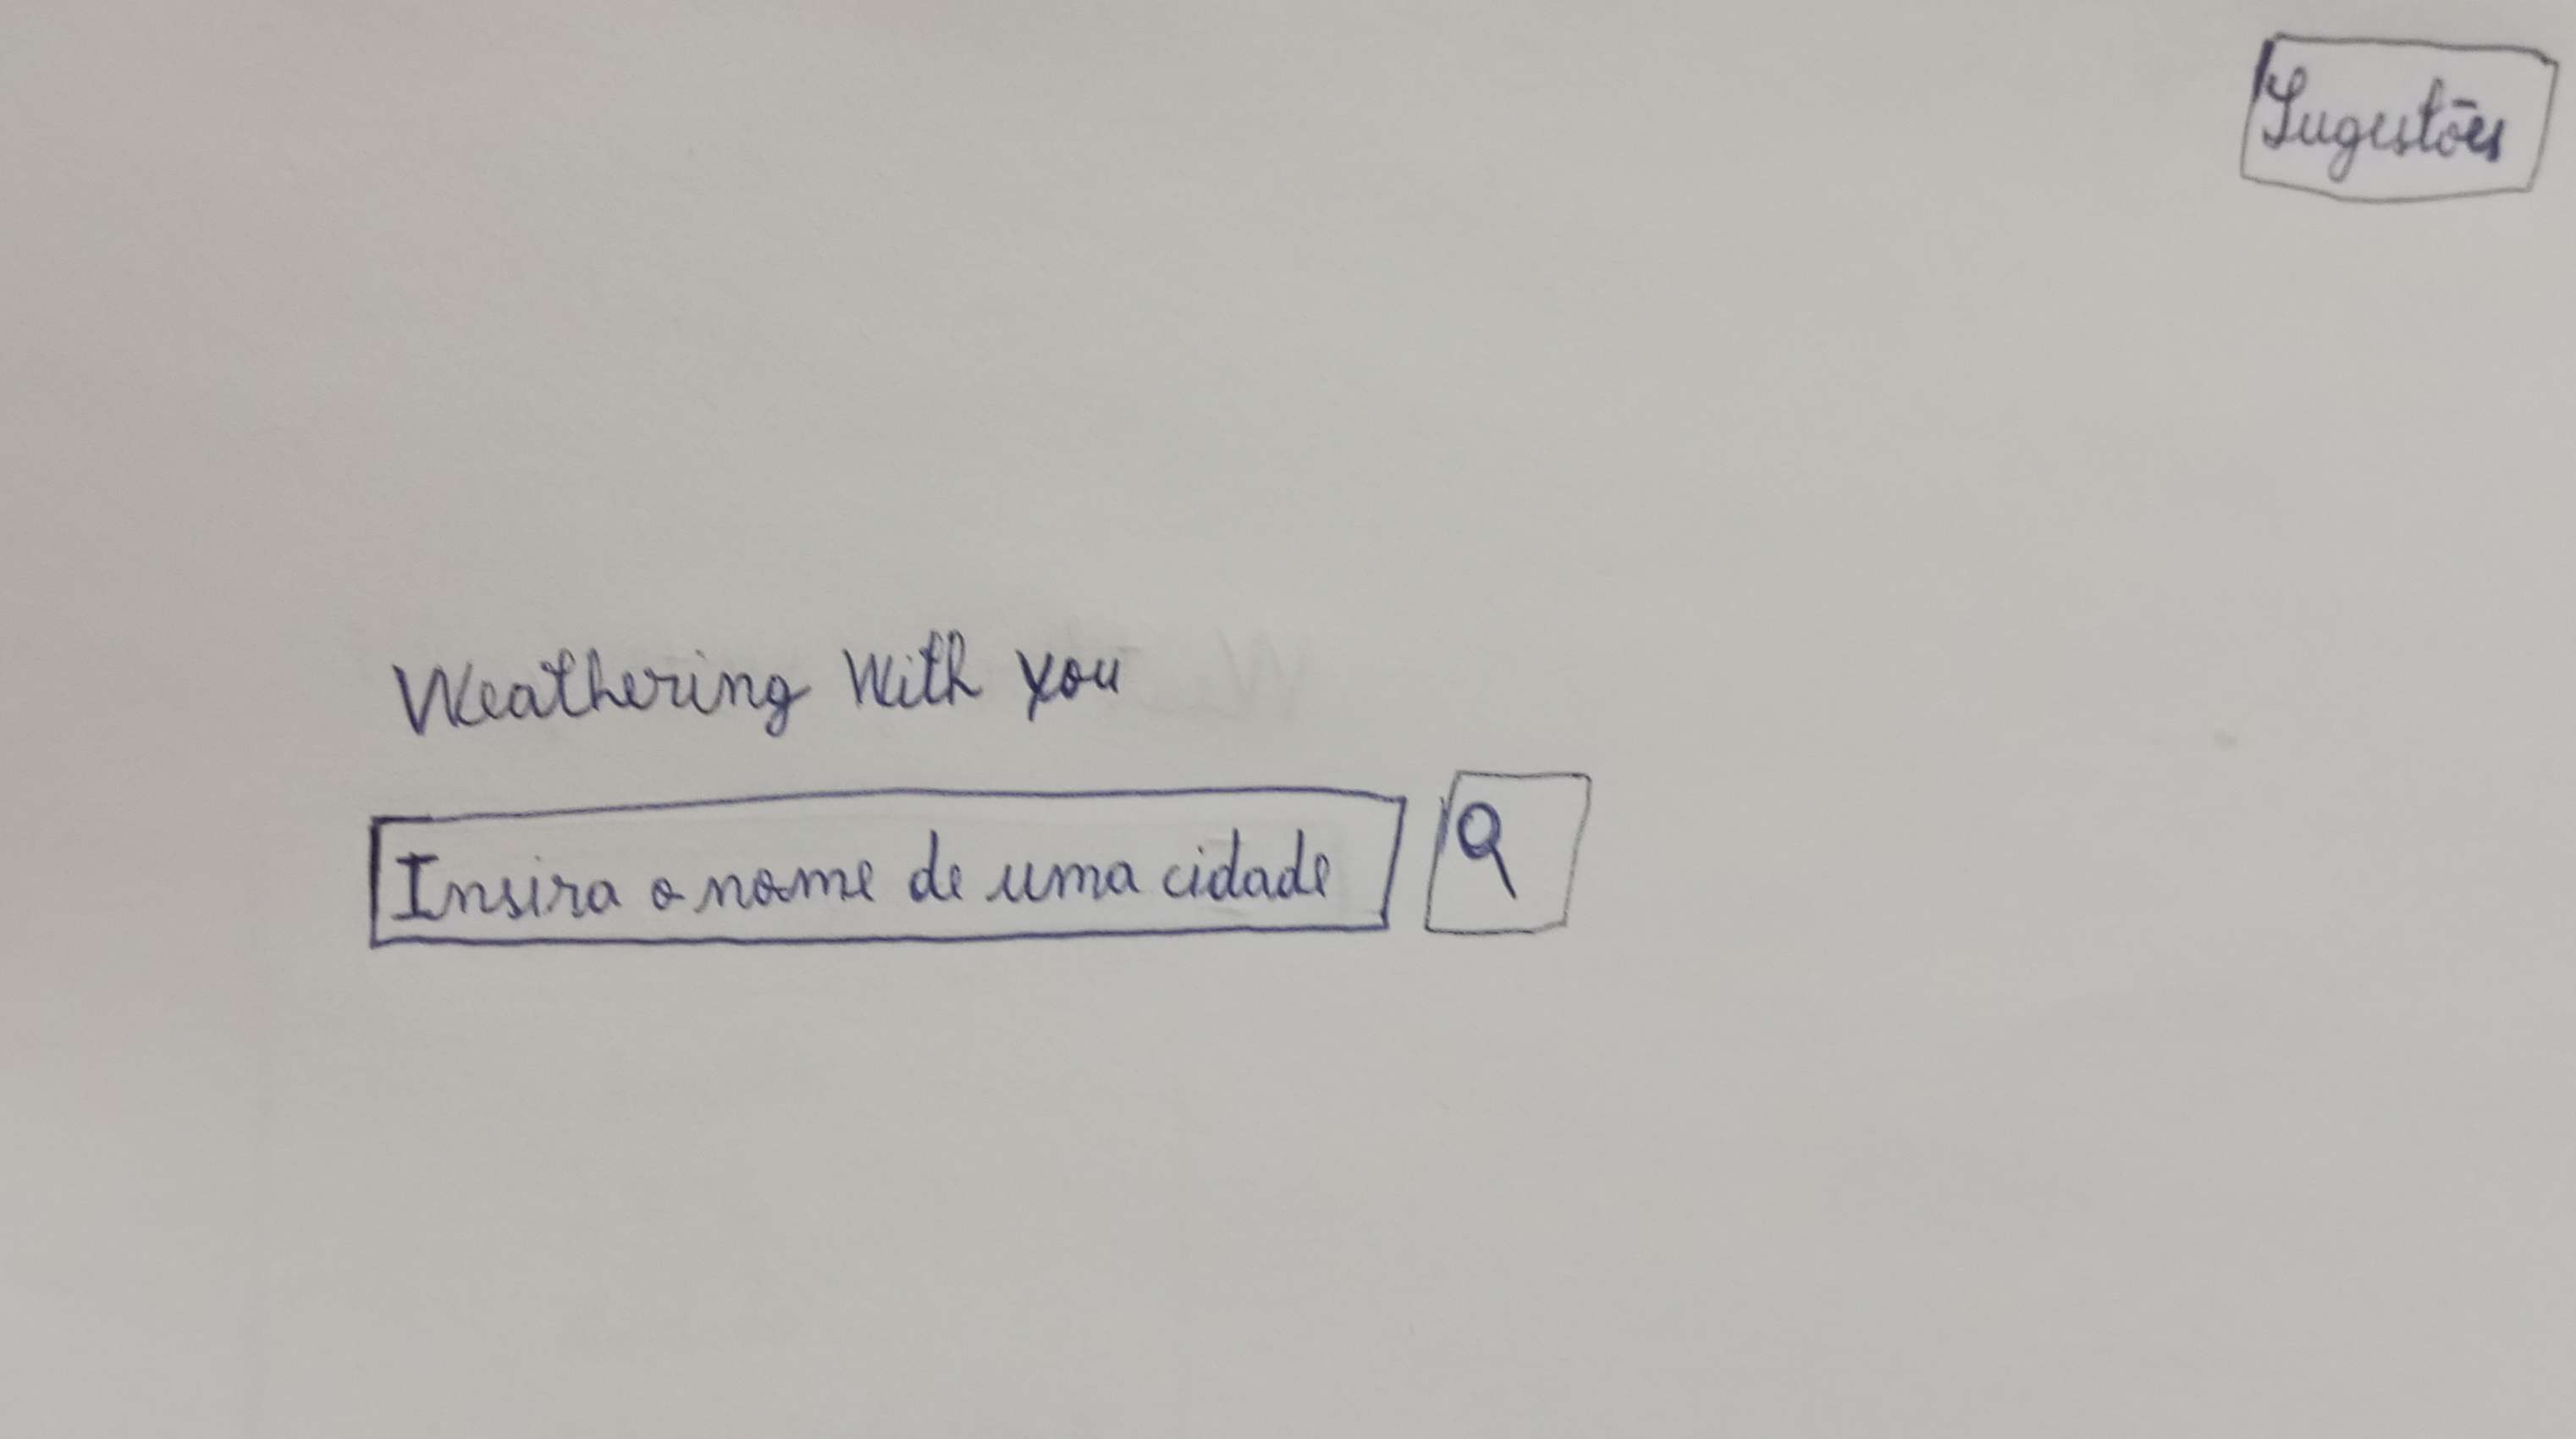 Sugestões
Weathering With you
Insira o nome de uma cidade